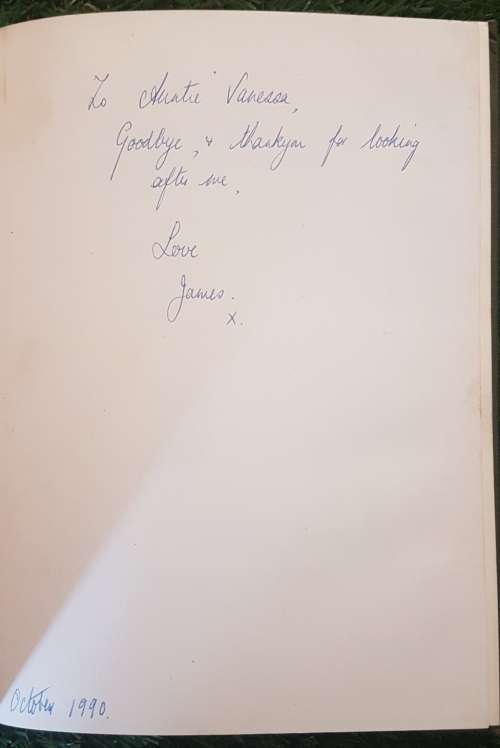 To Auntie Vanessa,
Goodbye, & thankyou for looking
after me,
Love
James.
x.
October 1990.